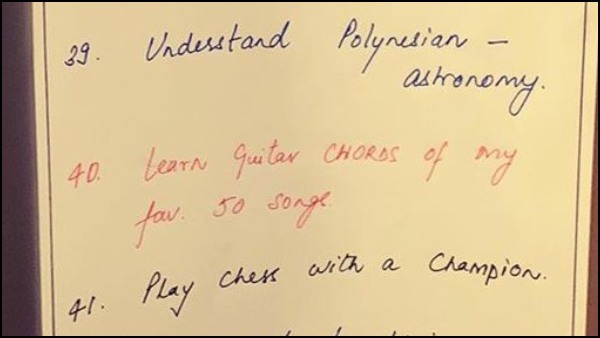 39. Undesstand Polynesian -
astronomy.
40. Learn Guitar CHORDS of my
fav. 50 songs.
41. Play Chess with a Champion.